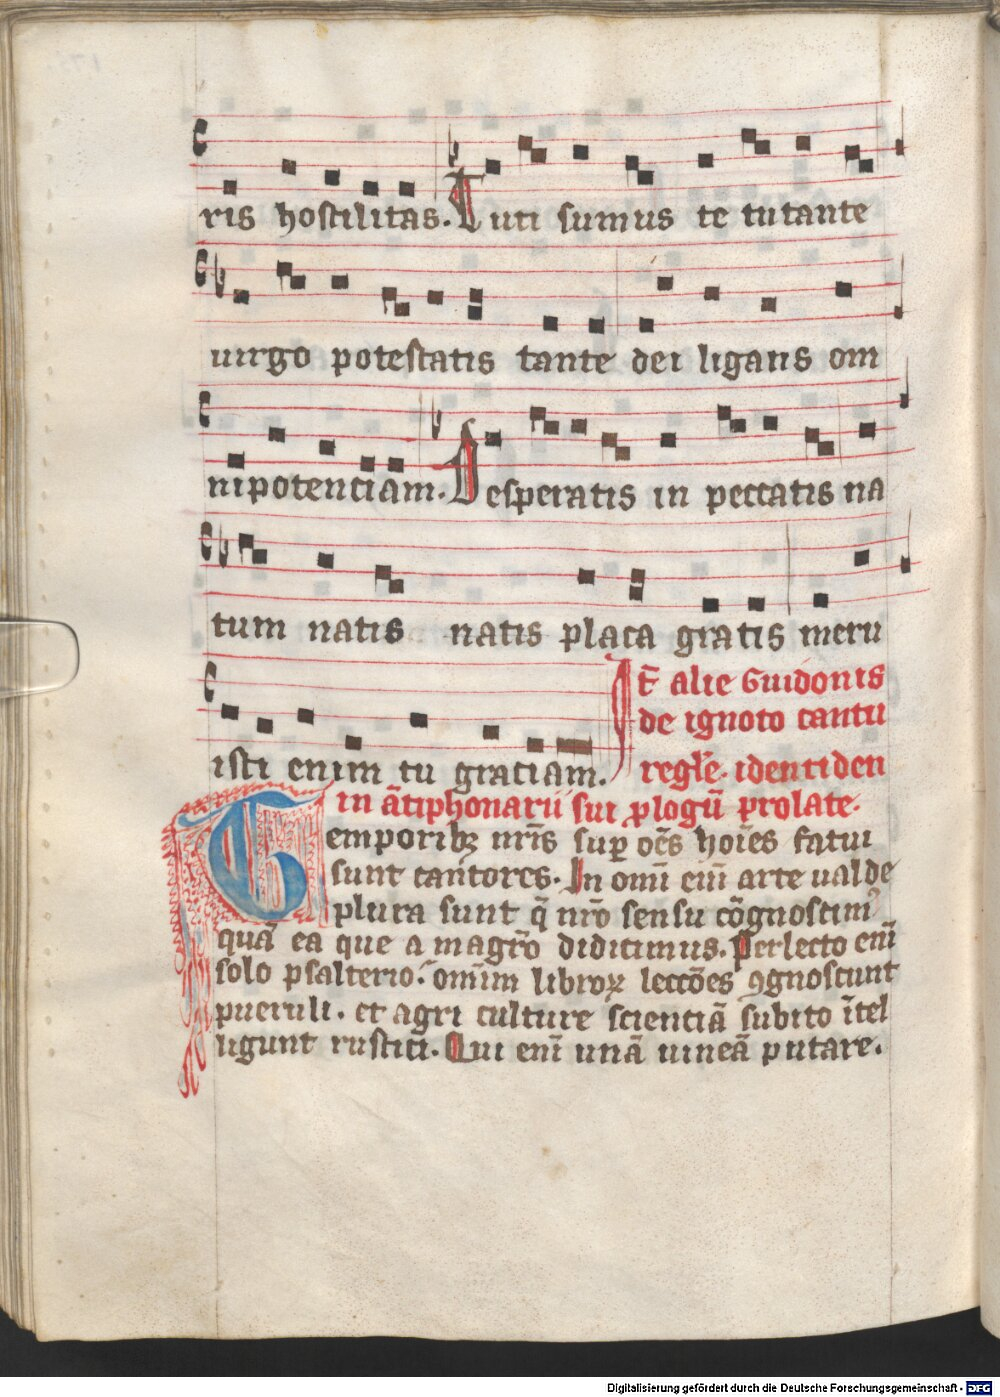 ris hostilitas. Tuti sumus te tutante
uirgo potestatis tante dei ligans om
nipotenciam. Desperatis in peccatis na
tum natis natis placa gratis meru
isti enim tu graciam.
Itē alie Guidonis
de ignoto cantu
regl̄e. identiden
in ātiphonarii sui ꝓlogū prolate.
Temporibꝫ nr̄is suꝑ oēs hoīes fatui
sunt cantores. In omī eīm arte ualde
plura sunt q̄ nr̄o sensu cōgnoscim᷒
quā ea que a magr̄o didicimus. Perlecto enī
solo psalterio. omīum libroꝝ leccōes ꝯgnoscunt
pueruli. et agri culture scienciā subito ītel
ligunt rustici. Qui enī unā uineā putare.
Digitalisierung gefördert durch die Deutsche Forschungsgemeinschaft - DFG